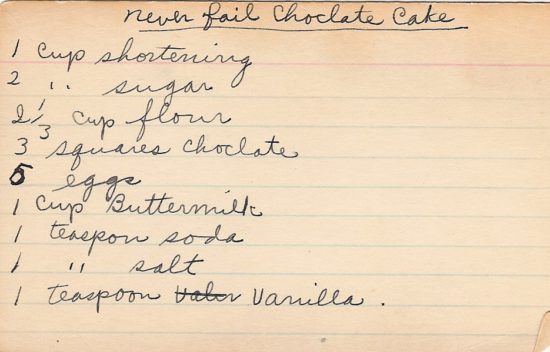 never fail Choclate Cake
1 cup shortening
2 " sugar
2 1/3 cup flour
3 squares choclate
5 eggs
1 cup Buttermilk
1 teaspon soda
1 " salt
1 teaspoon Vanilla .